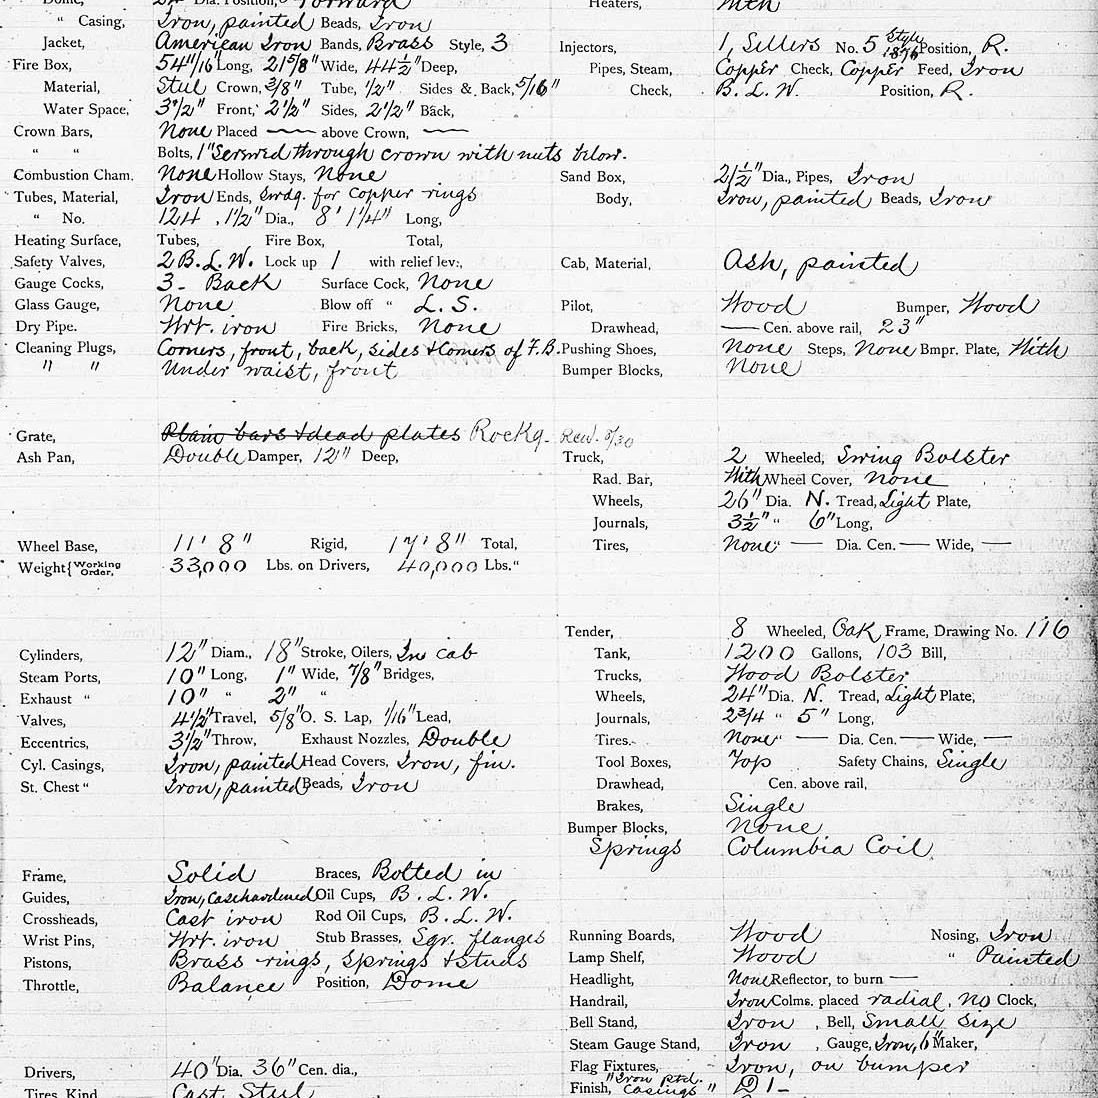 Dome, Dia. Position, Forward
" Casing, Iron, painted Beads, Iron
Jacket, American Iron Bands, Brass Style, 3
Fire Box, 54 11/16" Long, 21 5/8" Wide, 44 1/2" Deep,
Material, Steel Crown, 3/8" Tube, 1/2" Sides & Back, 5/16"
Water Space, 3 1/2" Front, 2 1/2" Sides, 2 1/2" Back,
Crown Bars, None Placed — above Crown, —
" " Bolts, 1" Screwed through crown with nuts below.
Combustion Cham. None Hollow Stays, None
Tubes, Material, Iron Ends, Swdg. for copper rings
" No. 124, 1 1/2" Dia., 8' 1 1/4" Long,
Heating Surface, Tubes, Fire Box, Total,
Safety Valves, 2 B.L.W. Lock up 1 with relief lev.,
Gauge Cocks, 3 - Back Surface Cock, None
Glass Gauge, None Blow off " L. S.
Dry Pipe. Wrt. iron Fire Bricks, None
Cleaning Plugs, Corners, front, back, sides & Corners of F.B.
" " Under waist, front
Grate, Plain bars & dead plates Rockg. Rcd. 8/30
Ash Pan, Double Damper, 12" Deep,
Wheel Base, 11' 8" Rigid, 17' 8" Total,
Weight { Working Order, 33,000 Lbs. on Drivers, 40,000 Lbs. "
Cylinders, 12" Diam., 18" Stroke, Oilers, In cab
Steam Ports, 10" Long, 1" Wide, 7/8" Bridges,
Exhaust " 10" " 2" "
Valves, 4 1/2" Travel, 5/8" O. S. Lap, 1/16" Lead,
Eccentrics, 3 1/2" Throw, Exhaust Nozzles, Double
Cyl. Casings, Iron, painted Head Covers, Iron, fin.
St. Chest " Iron, painted Beads, Iron
Frame, Solid Braces, Bolted in
Guides, Iron, Casehardened Oil Cups, B. L. W.
Crossheads, Cast iron Rod Oil Cups, B. L. W.
Wrist Pins, Wrt. iron Stub Brasses, Sqr. flanges
Pistons, Brass rings, springs & studs
Throttle, Balance Position, Dome
Drivers, 40" Dia. 36" Cen. dia.,
Tires, Kind Cast Steel
Heaters, With
Injectors, 1, Sellers No. 5 Style 1876 Position, R.
Pipes, Steam, Copper Check, Copper Feed, Iron
Check, B. L. W. Position, R.
Sand Box, 21 1/2" Dia., Pipes, Iron
Body, Iron, painted Beads, Iron
Cab, Material, Ash, painted
Pilot, Wood Bumper, Wood
Drawhead, — Cen. above rail, 23"
Pushing Shoes, None Steps, None Bmpr. Plate, With
Bumper Blocks, None
Truck, 2 Wheeled, Swing Bolster
Rad. Bar, With Wheel Cover, none
Wheels, 26" Dia. N. Tread, Light Plate,
Journals, 3 1/2" " 6" Long,
Tires, None " — Dia. Cen. — Wide, —
Tender, 8 Wheeled, Oak Frame, Drawing No. 116
Tank, 1200 Gallons, 103 Bill,
Trucks, Wood Bolster
Wheels, 24" Dia. N. Tread, Light Plate,
Journals, 2 3/4 " 5" Long,
Tires. None " — Dia. Cen. — Wide, —
Tool Boxes, Top Safety Chains, Single
Drawhead, Cen. above rail,
Brakes, Single
Bumper Blocks, None
Springs Columbia Coil
Running Boards, Wood Nosing, Iron
Lamp Shelf, Wood " Painted
Headlight, None Reflector, to burn —
Handrail, Iron Colms. placed radial, No Clock,
Bell Stand, Iron, Bell, Small size
Steam Gauge Stand, Iron, Gauge, Iron, 6" Maker,
Flag Fixtures, Iron, on bumper
Finish, "Iron ptd. Casings" D 1-